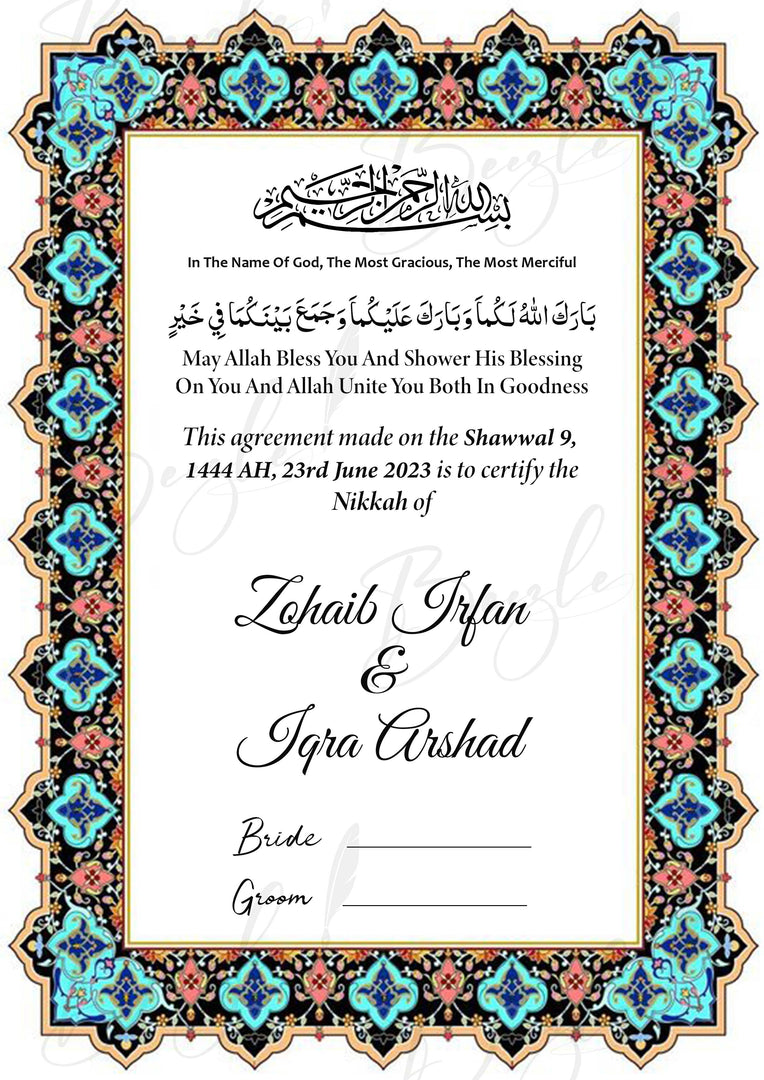 بسم الله الرحمن الرحيم
In The Name Of God, The Most Gracious, The Most Merciful
بَارَكَ اللهُ لَكُمَا وَبَارَكَ عَلَيْكُمَا وَجَمَعَ بَيْنَكُمَا فِي خَيْرٍ
May Allah Bless You And Shower His Blessing
On You And Allah Unite You Both In Goodness
This agreement made on the Shawwal 9,
1444 AH, 23rd June 2023 is to certify the
Nikkah of
Zohaib Irfan
&
Iqra Arshad
Bride
Groom
Beezle
Beezle
Beezle